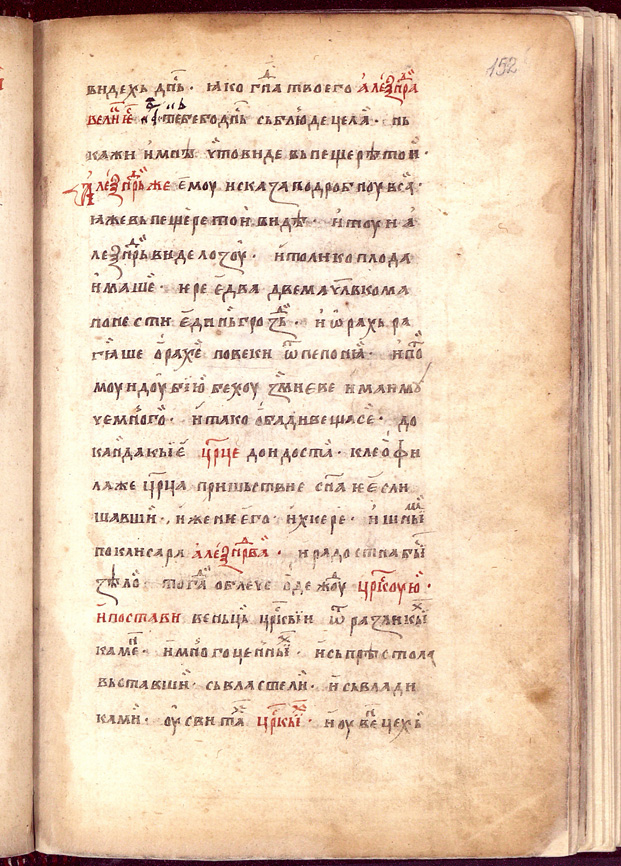 152
видехь дн҃ь · ꙗко гп҃ⷣа твоего алеѯⷩ҇дра
велиⷦ҇їе тебе бо дн҃ь сьблюде цела · нь
кажи и мнѣ что виде вь пещерѣ тои ·
Алеѯⷩ҇дрь же ѥмоу исказа подробноу вса ·
ꙗже вь пещере тои видѣ · и тоу и а
леѯⷩ҇дрь виде лозоу · и толико плода
имаше · и ре едва двема чл҃вкома
понести единь гроздь · и ѡрахь ра
гꙗше ѻрахе повеки ѿ пепонꙗ · и по
моу и доубїю бехоу змиеве и маимꙋ
че много · и тако обадивешасе · до
кандакыѥ цр҃це доидоста · клеѻфи
лаже цр҃ца пришьствие сн҃а ѥ слы
шавши · и жени его · и хкере · и шⷧ҇ьнїи
поклисара алеѯⷩ҇дрва · и радостна бїи
ѕѣло · тогда облече ѻдеждоу цр҃скоую ·
и постави веньць цр҃скыи ѿ разликыⷯ
камеⷩ҇ · и многоценныⷯ · и сь прѣстола
вьставши · сь властели · и сь влади
ками · оу свитаⷯ цр҃кыⷯ · и оу веⷩ҇цехь